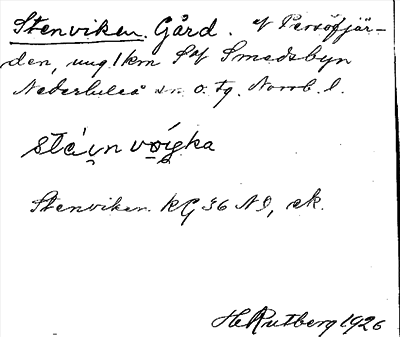 Stenviken. Gård. af Persöfjär-
den, ung. 1 km S af Smedsbyn
Nederluleå sn. o. tg. Norrb. l.
stáinvoi̯gka
Stenviken. KG 36 NO, ek.
H Rutberg 1926